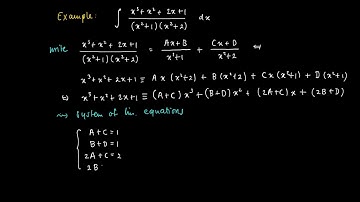 Example: ∫ x³+x²+2x+1 / (x²+1)(x²+2) dx
write x³+x²+2x+1 / (x²+1)(x²+2) = Ax+B / x²+1 + Cx+D / x²+2 ⇔
x³+x²+2x+1 ≡ Ax(x²+2) + B(x²+2) + Cx(x²+1) + D(x²+1)
⇔ x³+x²+2x+1 ≡ (A+C)x³ + (B+D)x² + (2A+C)x + (2B+D)
⇝ System of lin. equations
{ A+C=1
B+D=1
2A+C=2
2B